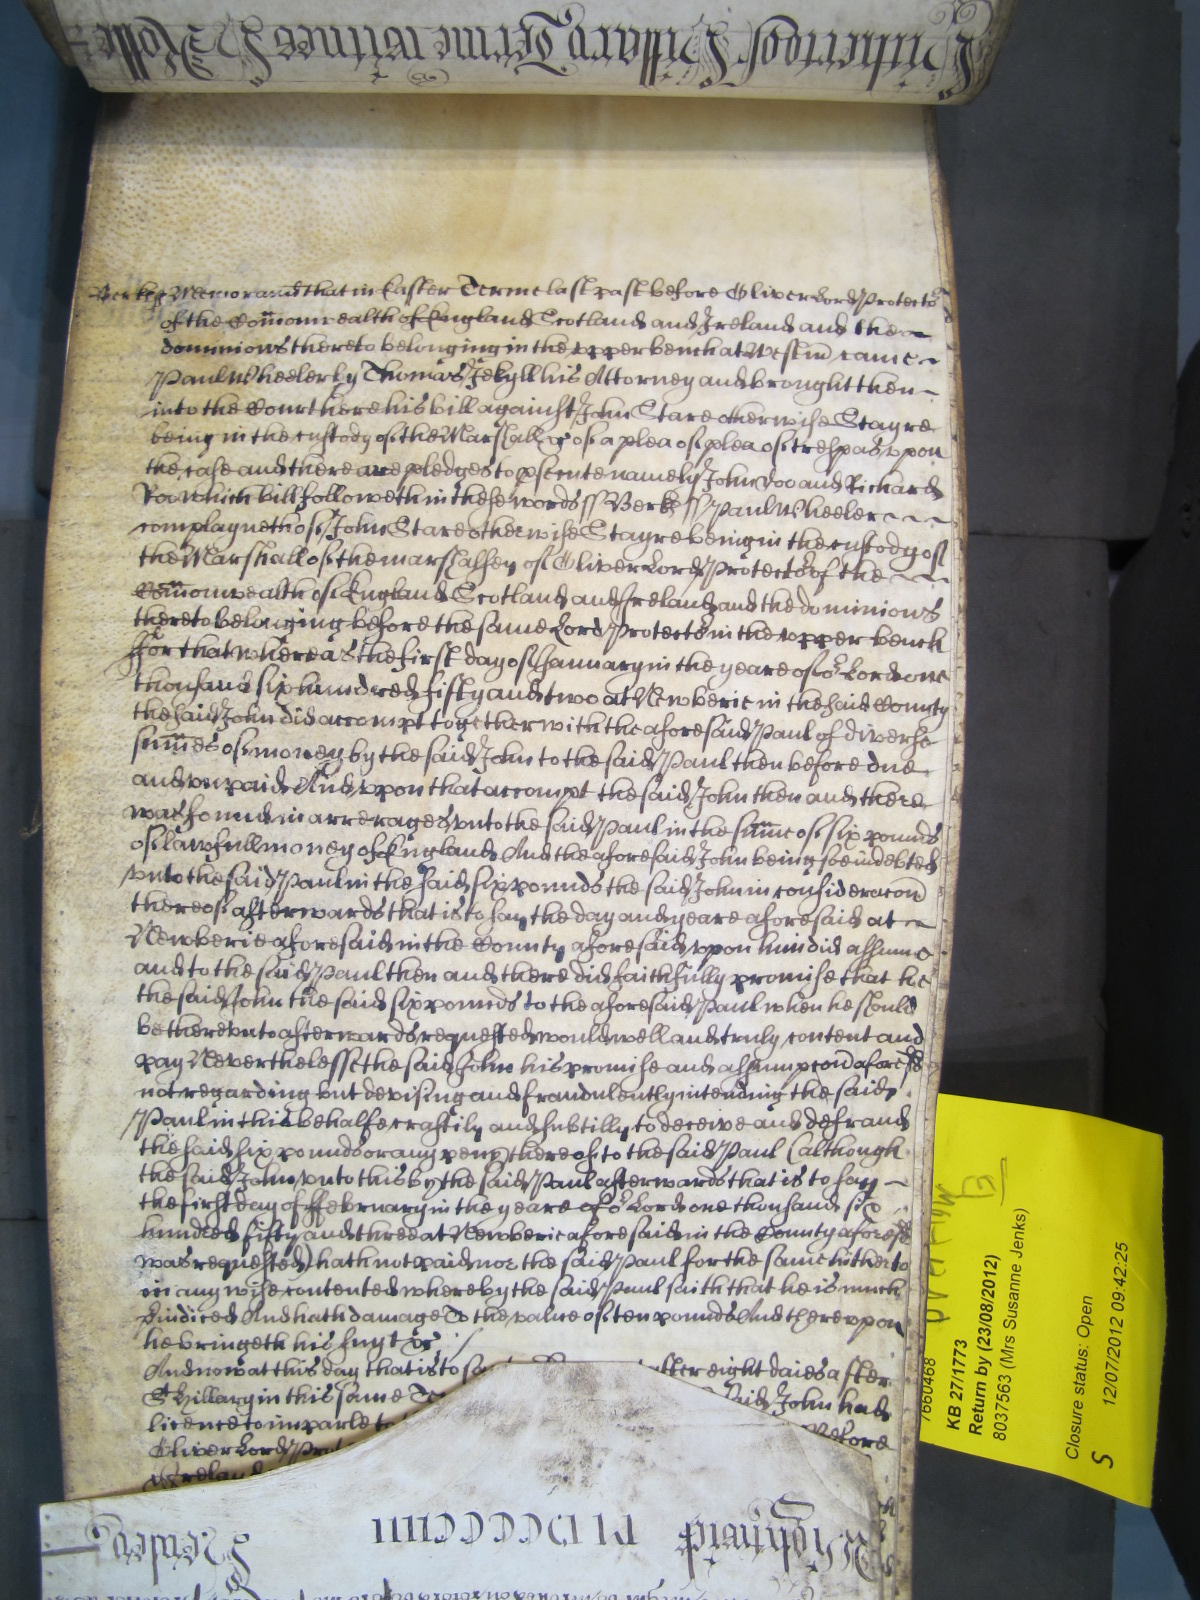 Berks Memorand that in Easter Terme last past before Oliver Lord Protector
of the Comonwealth of England Scotland and Ireland and the
dominions thereto belonging in the upper bench at Westm came
Paul Wheeler by Thomas Jekyll his Attorney and brought then
into the Court here his bill against John Stare otherwise Stayre
being in the custody of the Marshall &c of a plea of plea of trespas upon
the case and there are pledges to psecute namely John Doo and Richard
Roo which bill followeth in these words ss Berks ss Paul Wheeler
complayneth of John Stare otherwise Stayre being in the custody of
the Marshall of the marshalsey of Oliver Lord Protector of the
Comonwealth of England Scotland and Ireland and the dominions
thereto belonging before the same Lord Protector in the upper bench
ffor that whereas the first day of January in the yeare of or Lord one
thousand six hundred fifty and two at Newberie in the said County
the said John did accompt together with the aforesaid Paul of diverse
sumes of money by the said John to the said Paul then before due
and unpaid And upon that accompt the said John then and there
was found in arrerages unto the said Paul in the sume of six pounds
of lawfull money of England And the aforesaid John being soe indebted
unto the said Paul in the said six pounds the said John in consideracon
thereof afterwards that is to say the day and yeare aforesaid at
Newberie aforesaid in the County aforesaid upon him did assume
and to the said Paul then and there did faithfully promise that he
the said John the said six pounds to the aforesaid Paul when he should
be thereunto afterwards requested would well and truly content and
pay Neverthelesse the said John his promise and assumpcon aforesd
not regarding but devising and fraudulently intending the said
Paul in this behalfe craftily and subtilly to deceive and defraud
the said six pounds or any peny thereof to the said Paul (although
the said John unto this by the said Paul afterwards that is to say
the first day of ffebruary in the yeare of or Lord one thousand six
hundred fifty and three at Newberie aforesaid in the County aforesd
was requested) hath not paid nor the said Paul for the same hitherto
in any wise contented whereby the said Paul saith that he is much
And hath damage To the value of ten pounds And thereupon
he bringeth his suyt &c
And now at this day that is to say after eight daies after
St Hillary in this same Te said John had
licence to imparle to Before
Oliver Lord Prot
Ireland
Hillary Terme
Rolle
7660468
KB 27/1773
Return by (23/08/2012)
8037563 (Mrs Susanne Jenks)
Closure status: Open
12/07/2012 09:42:25
S